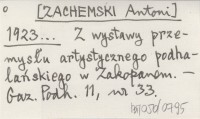 [ZACHEMSKI Antoni]
1923... Z wystawy prze-
mysłu artystycznego podha-
lańskiego w Zakopanem. —
Gaz. Podh. 11, nr 33.